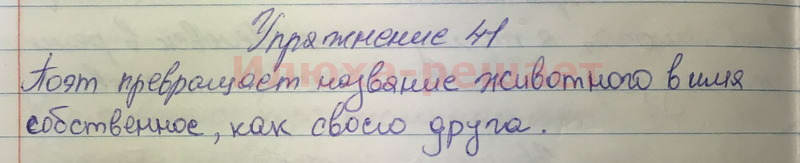 Упражнение 41
Поэт превращает название животного в имя
собственное, как своего друга.
Илюха-решает